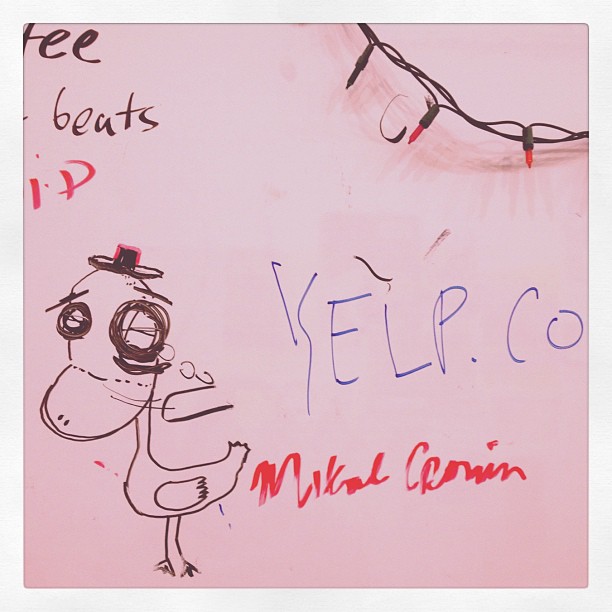 fee
beats
i.p
YELP.CO
Mikal Cronin